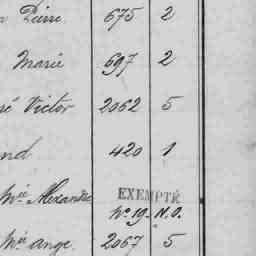 Pierre 675 2
Marie 697 2
Victor 2062 5
nd 420 1
Mie Alexandre EXEMPTÉ
No 19. N.O.
Mie ange 2067 5